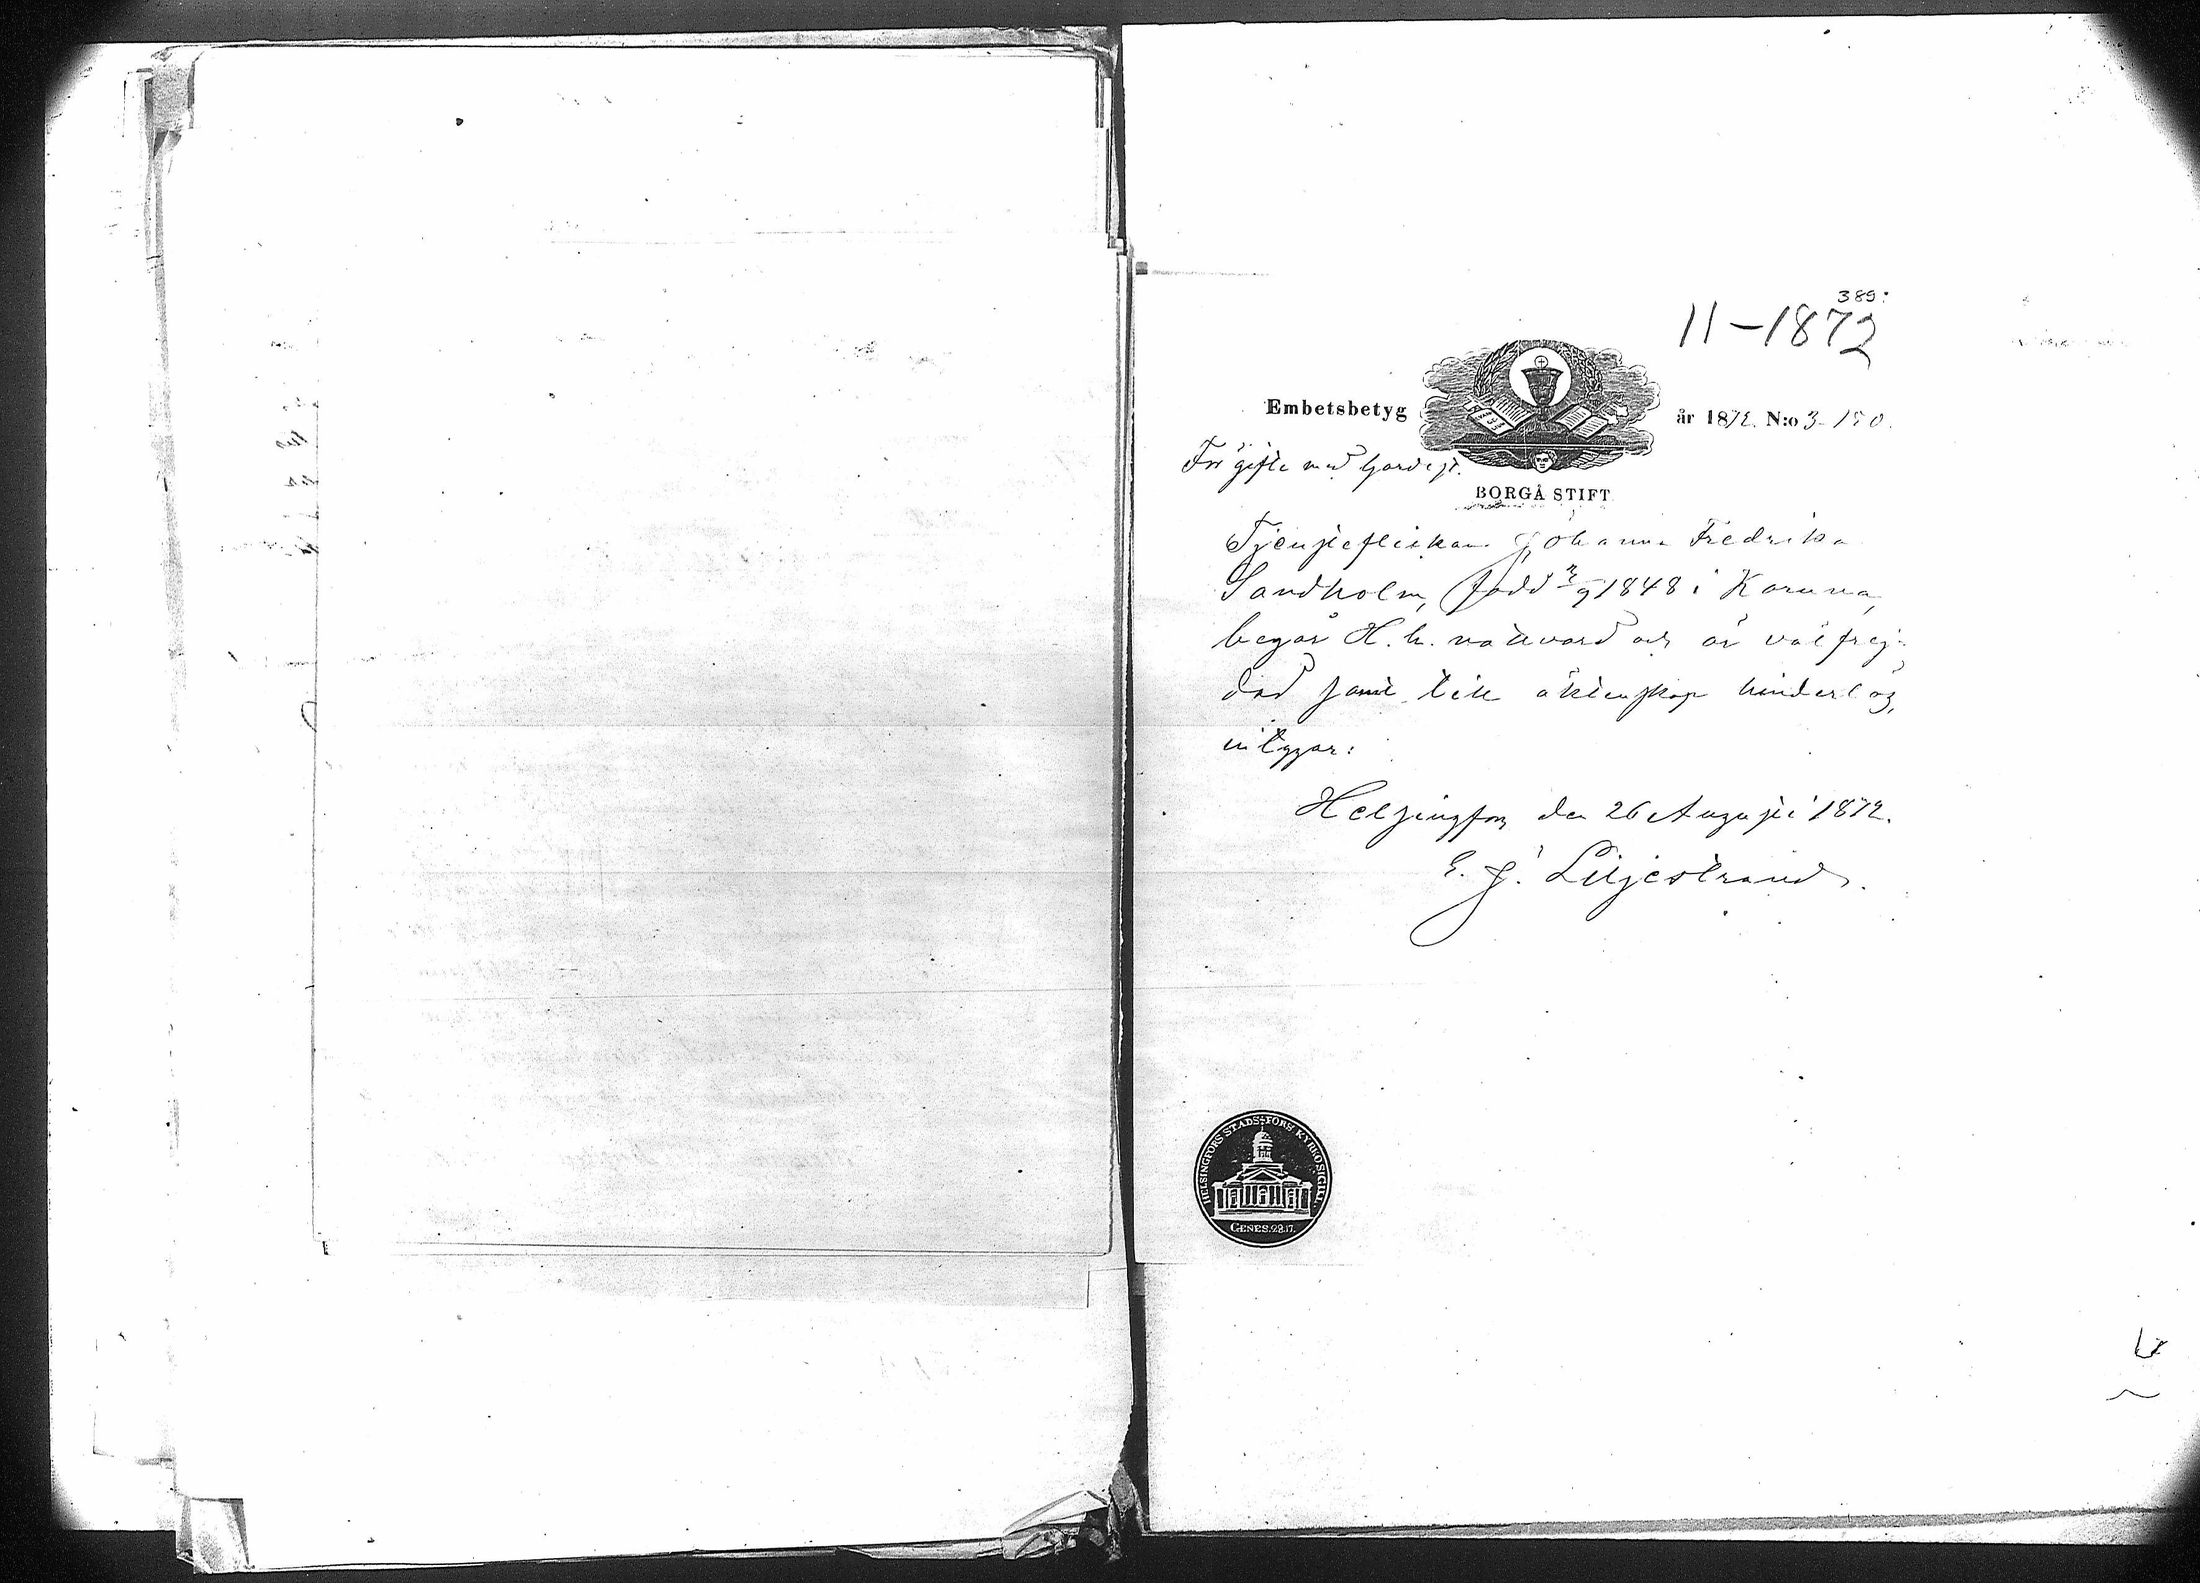 389.
11-1872
Embetsbetyg år 1872. N:o 3-150.
För gifte med Gardist.
BORGÅ STIFT
Tjensteflickan Johanna Fredrika
Sandholm, född 9 1848 i Karuna,
begår H. h. nattvard och är välfrej-
dad samt till äktenskap hinderlös,
intygar:
Helsingfors den 26 Augusti 1872.
E. J. Liljestrand.
HELSINGFORS STADS FÖRS: KYRKOSIGILL
GENES. 28.17.